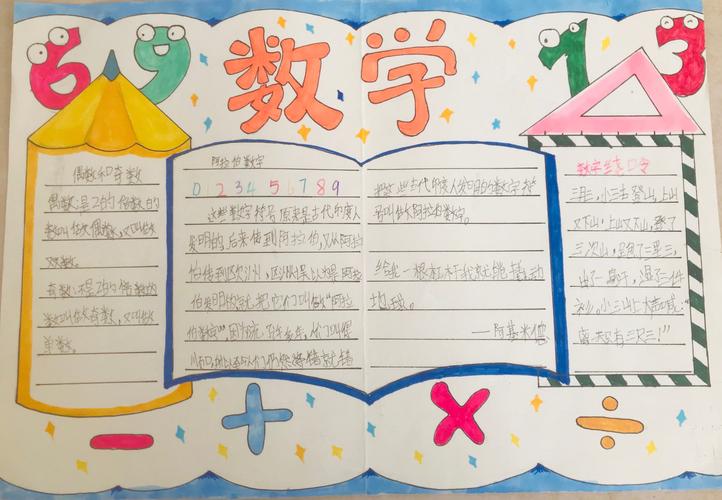 6 9 数学 1 3
偶数和奇数
偶数:是2的倍数的
数叫做偶数,又叫做
双数。
奇数:不是2的倍数的
数叫做奇数,又叫做
单数。
阿拉伯数字
0 1 2 3 4 5 6 7 8 9
这些数字符号原来是古代印度人
发明的,后来传到阿拉伯,又从阿拉
伯传到欧洲,欧洲人以为是阿拉
伯发明的,就把它们叫做“阿拉
伯数字”,因为流
所以至今人们仍然将错就错
把这些古代印度人发明的数字符
号叫做阿拉伯数字。
给我一根杠杆我就能撬动
地球。
——阿基米德
数字绕口令
三月三,小三去登山,上山
又下山,下山又上山,登了
三次山,跑了三里三,
出了一身汗,湿了三件
衫,小三山上大声喊:
“离天只有三尺三!”
− + × ÷